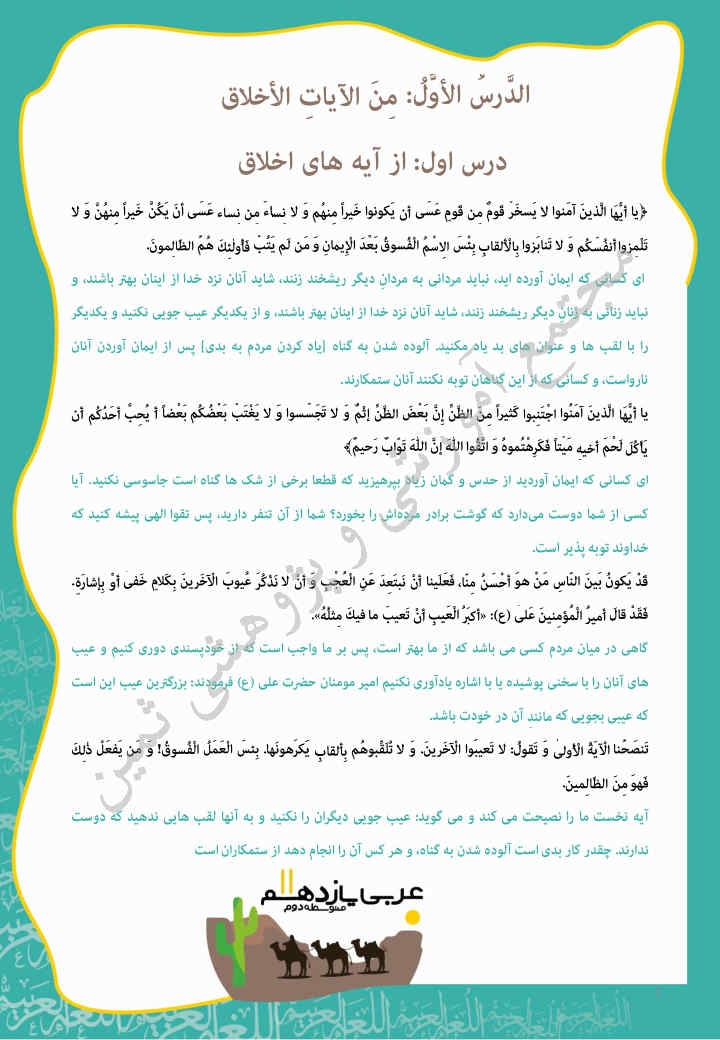 الدَّرسُ الأوَّلُ: مِنَ الآیاتِ الأخلاق
درس اول: از آیه های اخلاق
﴿یا أیُّهَا الَّذینَ آمَنوا لا یَسخَرْ قَومٌ مِن قَومٍ عَسَی أن یَکونوا خَیراً مِنهُم وَ لا نِساءٌ مِن نِساء عَسَی أنَ یَکُنَّ خَیراً مِنهُنَّ وَ لا
تَلْمِزوا أنفُسَکُم وَ لا تَنابَزوا بِالْألقابِ بِئْسَ الِاسْمُ الْفُسوقُ بَعْدَ الْإیمانِ وَ مَن لَم یَتُبْ فَأُولٰئِكَ هُمُ الظّالِمونَ.
ای کسانی که ایمان آورده اید، نباید مردانی به مردانِ دیگر ریشخند زنند، شاید آنان نزد خدا از اینان بهتر باشند، و
نباید زنانی به زنانِ دیگر ریشخند زنند، شاید آنان نزد خدا از اینان بهتر باشند، و از یکدیگر عیب جویی نکنید و یکدیگر
را با لقب ها و عنوان های بد یاد مکنید. آلوده شدن به گناه [یاد کردن مردم به بدی] پس از ایمان آوردن آنان
نارواست، و کسانی که از این گناهان توبه نکنند آنان ستمکارند.
یا أیُّهَا الَّذینَ آمَنُوا اجْتَنِبوا کَثیراً مِنَ الظَّنِّ إنَّ بَعْضَ الظَّنِّ إثْمٌ وَ لا تَجَسَّسوا وَ لا یَغْتَبْ بَعْضُکُم بَعْضاً أ یُحِبُّ أحَدُکُم أن
یَأکُلَ لَحْمَ أخیهِ مَیْتاً فَکَرِهْتُموهُ وَ اتَّقُوا اللهَ إنَّ اللهَ تَوّابٌ رَحیمٌ﴾
ای کسانی که ایمان آوردید از حدس و گمان زیاد بپرهیزید که قطعا برخی از شک ها گناه است جاسوسی نکنید. آیا
کسی از شما دوست می‌دارد که گوشت برادر مرده‌اش را بخورد؟ شما از آن تنفر دارید، پس تقوا الهی پیشه کنید که
خداوند توبه پذیر است.
قَدْ یَکونُ بَینَ النّاسِ مَنْ هوَ أحْسَنُ مِنّا، فَعَلَینا أنْ نَبتَعِدَ عَنِ الْعُجْبِ وَ أنْ لا نَذْکُرَ عُیوبَ الْآخَرینَ بِکَلامٍ خَفی أوْ بِإشارَةٍ.
فَقَدْ قالَ أمیرُ الْمُؤمِنینَ عَلی (ع): «أکبَرُ الْعَیبِ أنْ تَعیبَ ما فیكَ مِثلُهُ».
گاهی در میان مردم کسی می باشد که از ما بهتر است، پس بر ما واجب است که از خودپسندی دوری کنیم و عیب
های آنان را با سخنی پوشیده یا با اشاره یادآوری نکنیم امیر مومنان حضرت علی (ع) فرمودند: بزرگترین عیب این است
که عیبی بجویی که مانند آن در خودت باشد.
تَنصَحُنا الْآیَةُ الْأولیٰ وَ تَقولُ: لا تَعیبُوا الْآخَرینَ. وَ لا تُلَقِّبوهُم بِألقابٍ یَکرَهونَها. بِئسَ الْعَمَلُ الْفُسوقُ! وَ مَن یَفعَلْ ذٰلِكَ
فَهوَ مِنَ الظّالِمینَ.
آیه نخست ما را نصیحت می کند و می گوید: عیب جویی دیگران را نکنید و به آنها لقب هایی ندهید که دوست
ندارند. چقدر کار بدی است آلوده شدن به گناه، و هر کس آن را انجام دهد از ستمکاران است
مجتمع آموزشی و پژوهشی ثمین
عربی یازدهم
متوسطه دوم